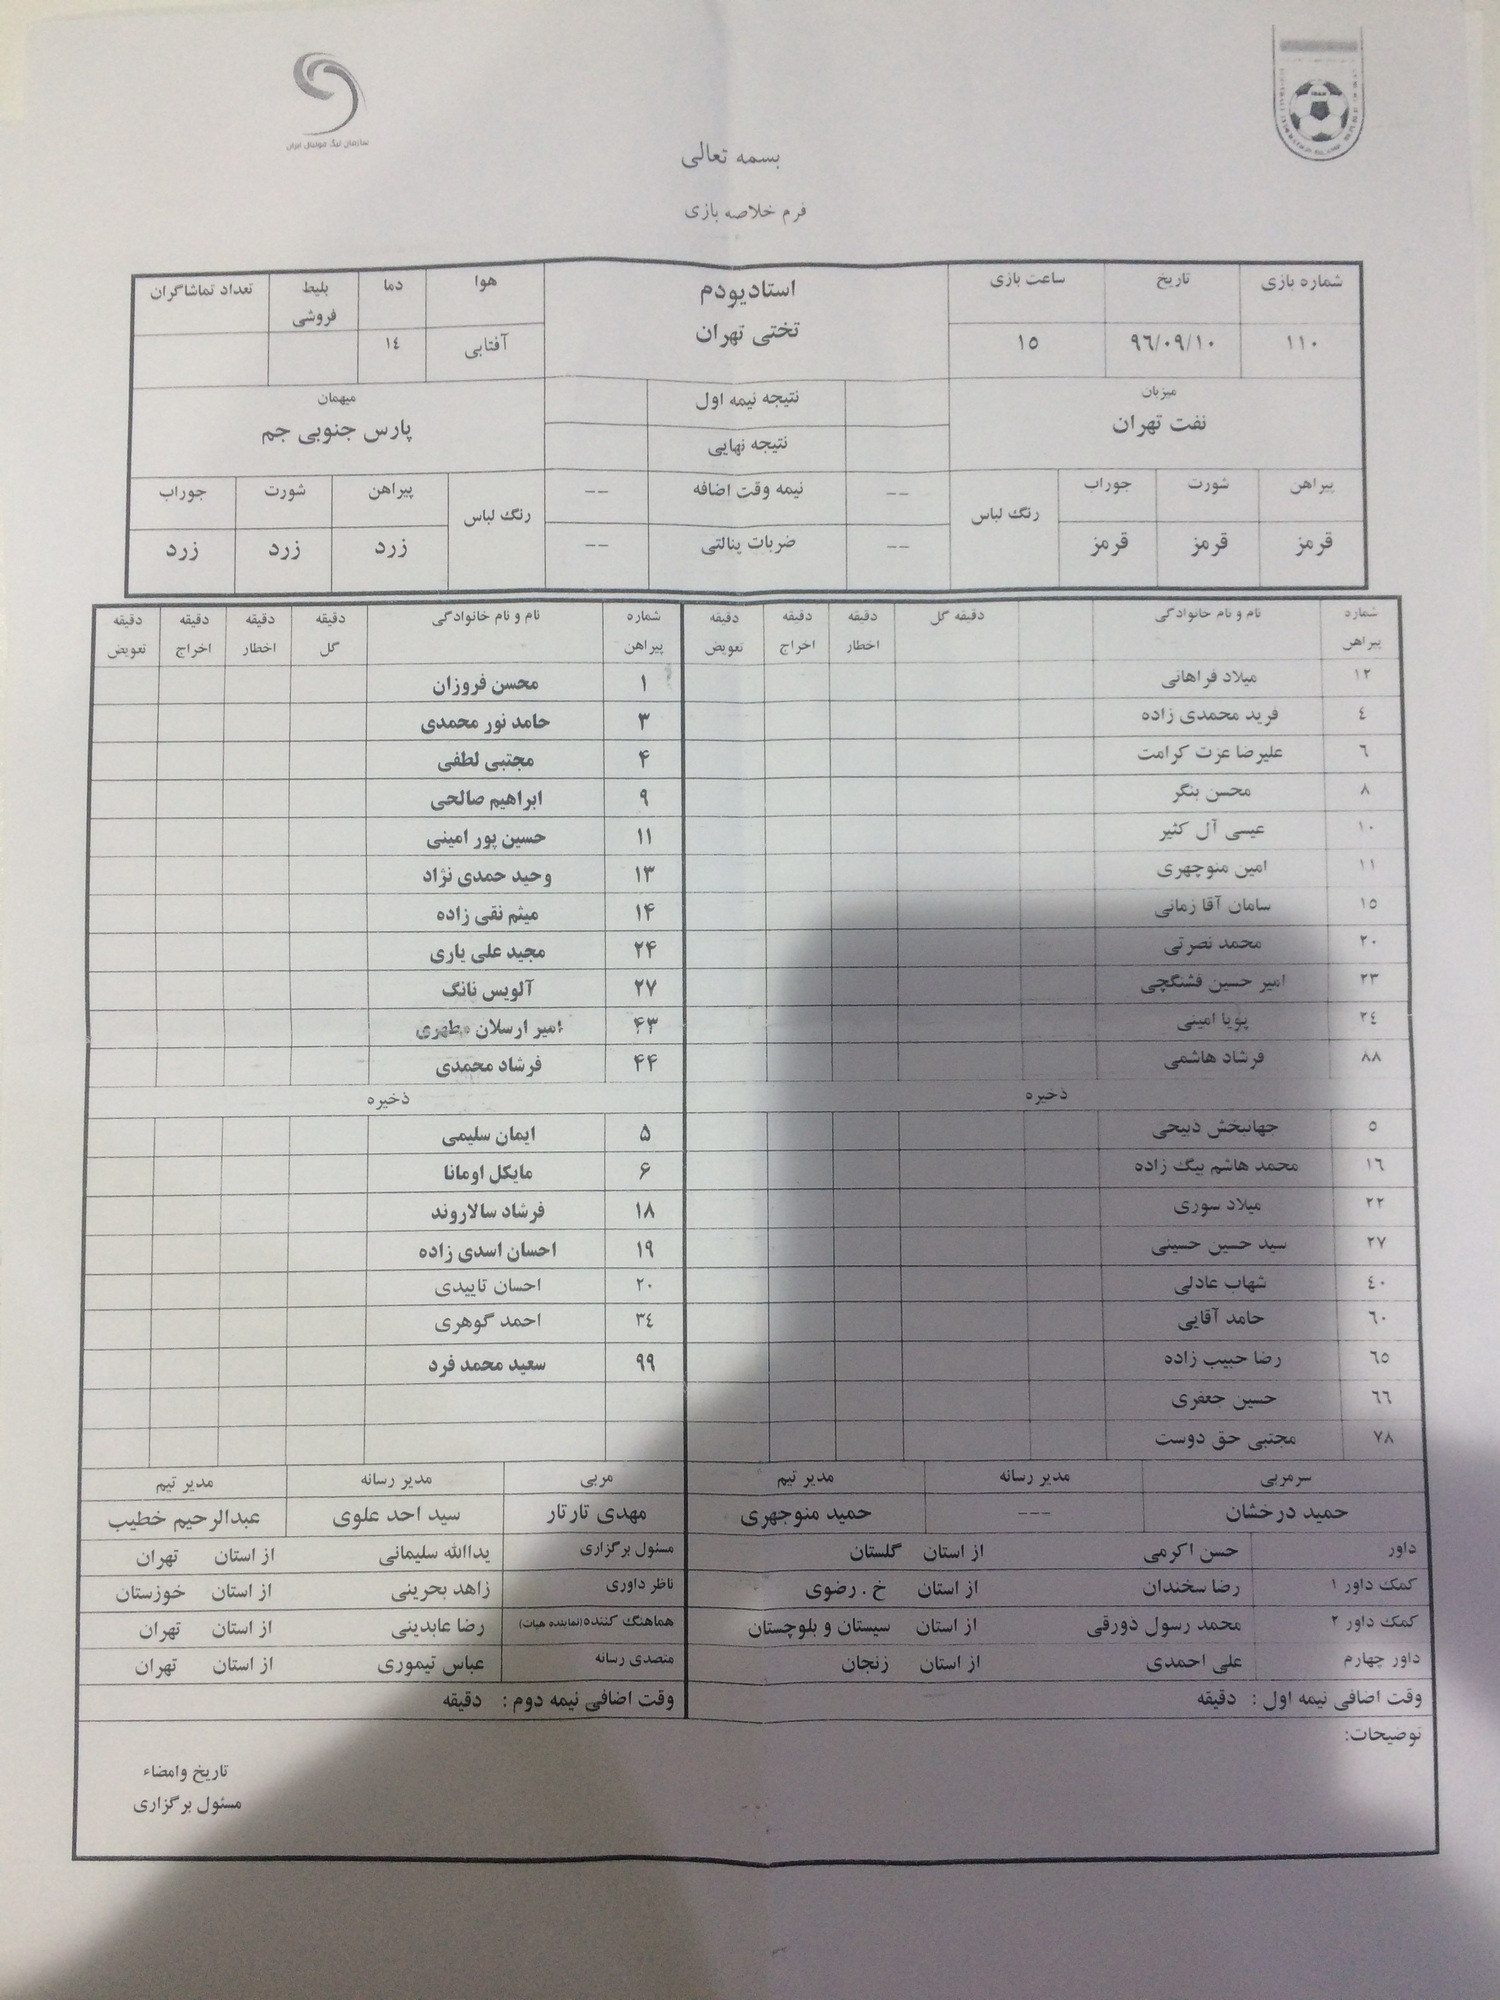 سازمان لیگ فوتبال ایران
بسمه تعالی
فرم خلاصه بازی
شماره بازی تاریخ ساعت بازی استادیودم هوا دما بلیط فروشی تعداد تماشاگران
۱۱۰ ۹٦/۰۹/۱۰ ۱٥ تختی تهران آفتابی ۱٤
میزبان نتیجه نیمه اول میهمان
نفت تهران نتیجه نهایی پارس جنوبی جم
پیراهن شورت جوراب رنگ لباس -- نیمه وقت اضافه -- رنگ لباس پیراهن شورت جوراب
قرمز قرمز قرمز -- ضربات پنالتی -- زرد زرد زرد
شماره پیراهن نام و نام خانوادگی دقیقه گل دقیقه اخطار دقیقه اخراج دقیقه تعویض شماره پیراهن نام و نام خانوادگی دقیقه گل دقیقه اخطار دقیقه اخراج دقیقه تعویض
۱۲ میلاد فراهانی ۱ محسن فروزان
٤ فرید محمدی زاده ۳ حامد نور محمدی
٦ علیرضا عزت کرامت ۴ مجتبی لطفی
۸ محسن بنگر ۹ ابراهیم صالحی
۱۰ عیسی آل کثیر ۱۱ حسین پور امینی
۱۱ امین منوچهری ۱۳ وحید حمدی نژاد
۱٥ سامان آقا زمانی ۱۴ میثم نقی زاده
۲۰ محمد نصرتی ۲۴ مجید علی یاری
۲۳ امیر حسین فشنگچی ۲۷ آلویس نانگ
۲٤ پویا امینی ۴۳ امیر ارسلان مطهری
۸۸ فرشاد هاشمی ۴۴ فرشاد محمدی
ذخیره ذخیره
٥ جهانبخش ذبیحی ۵ ایمان سلیمی
۱٦ محمد هاشم بیگ زاده ۶ مایکل اومانا
۲۲ میلاد سوری ۱۸ فرشاد سالاروند
۲۷ سید حسین حسینی ۱۹ احسان اسدی زاده
٤۰ شهاب عادلی ۲۰ احسان تاییدی
٦۰ حامد آقایی ۳٤ احمد گوهری
٦٥ رضا حبیب زاده ۹۹ سعید محمد فرد
٦٦ حسین جعفری
۷۸ مجتبی حق دوست
سرمربی مدیر رسانه مدیر تیم مربی مدیر رسانه مدیر تیم
حمید درخشان --- حمید منوچهری مهدی تارتار سید احد علوی عبدالرحیم خطیب
داور حسن اکرمی از استان گلستان مسئول برگزاری یداالله سلیمانی از استان تهران
کمک داور ۱ رضا سخندان از استان خ . رضوی ناظر داوری زاهد بحرینی از استان خوزستان
کمک داور ۲ محمد رسول دورقی از استان سیستان و بلوچستان هماهنگ کننده(نماینده هیات) رضا عابدینی از استان تهران
داور چهارم علی احمدی از استان زنجان متصدی رسانه عباس تیموری از استان تهران
وقت اضافی نیمه اول : دقیقه وقت اضافی نیمه دوم : دقیقه
توضیحات:
تاریخ وامضاء
مسئول برگزاری